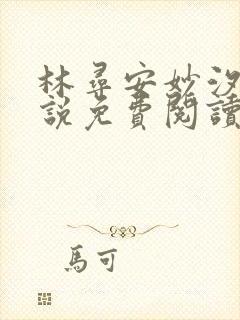 林尋安妙汐
說免費閱讀
馬可